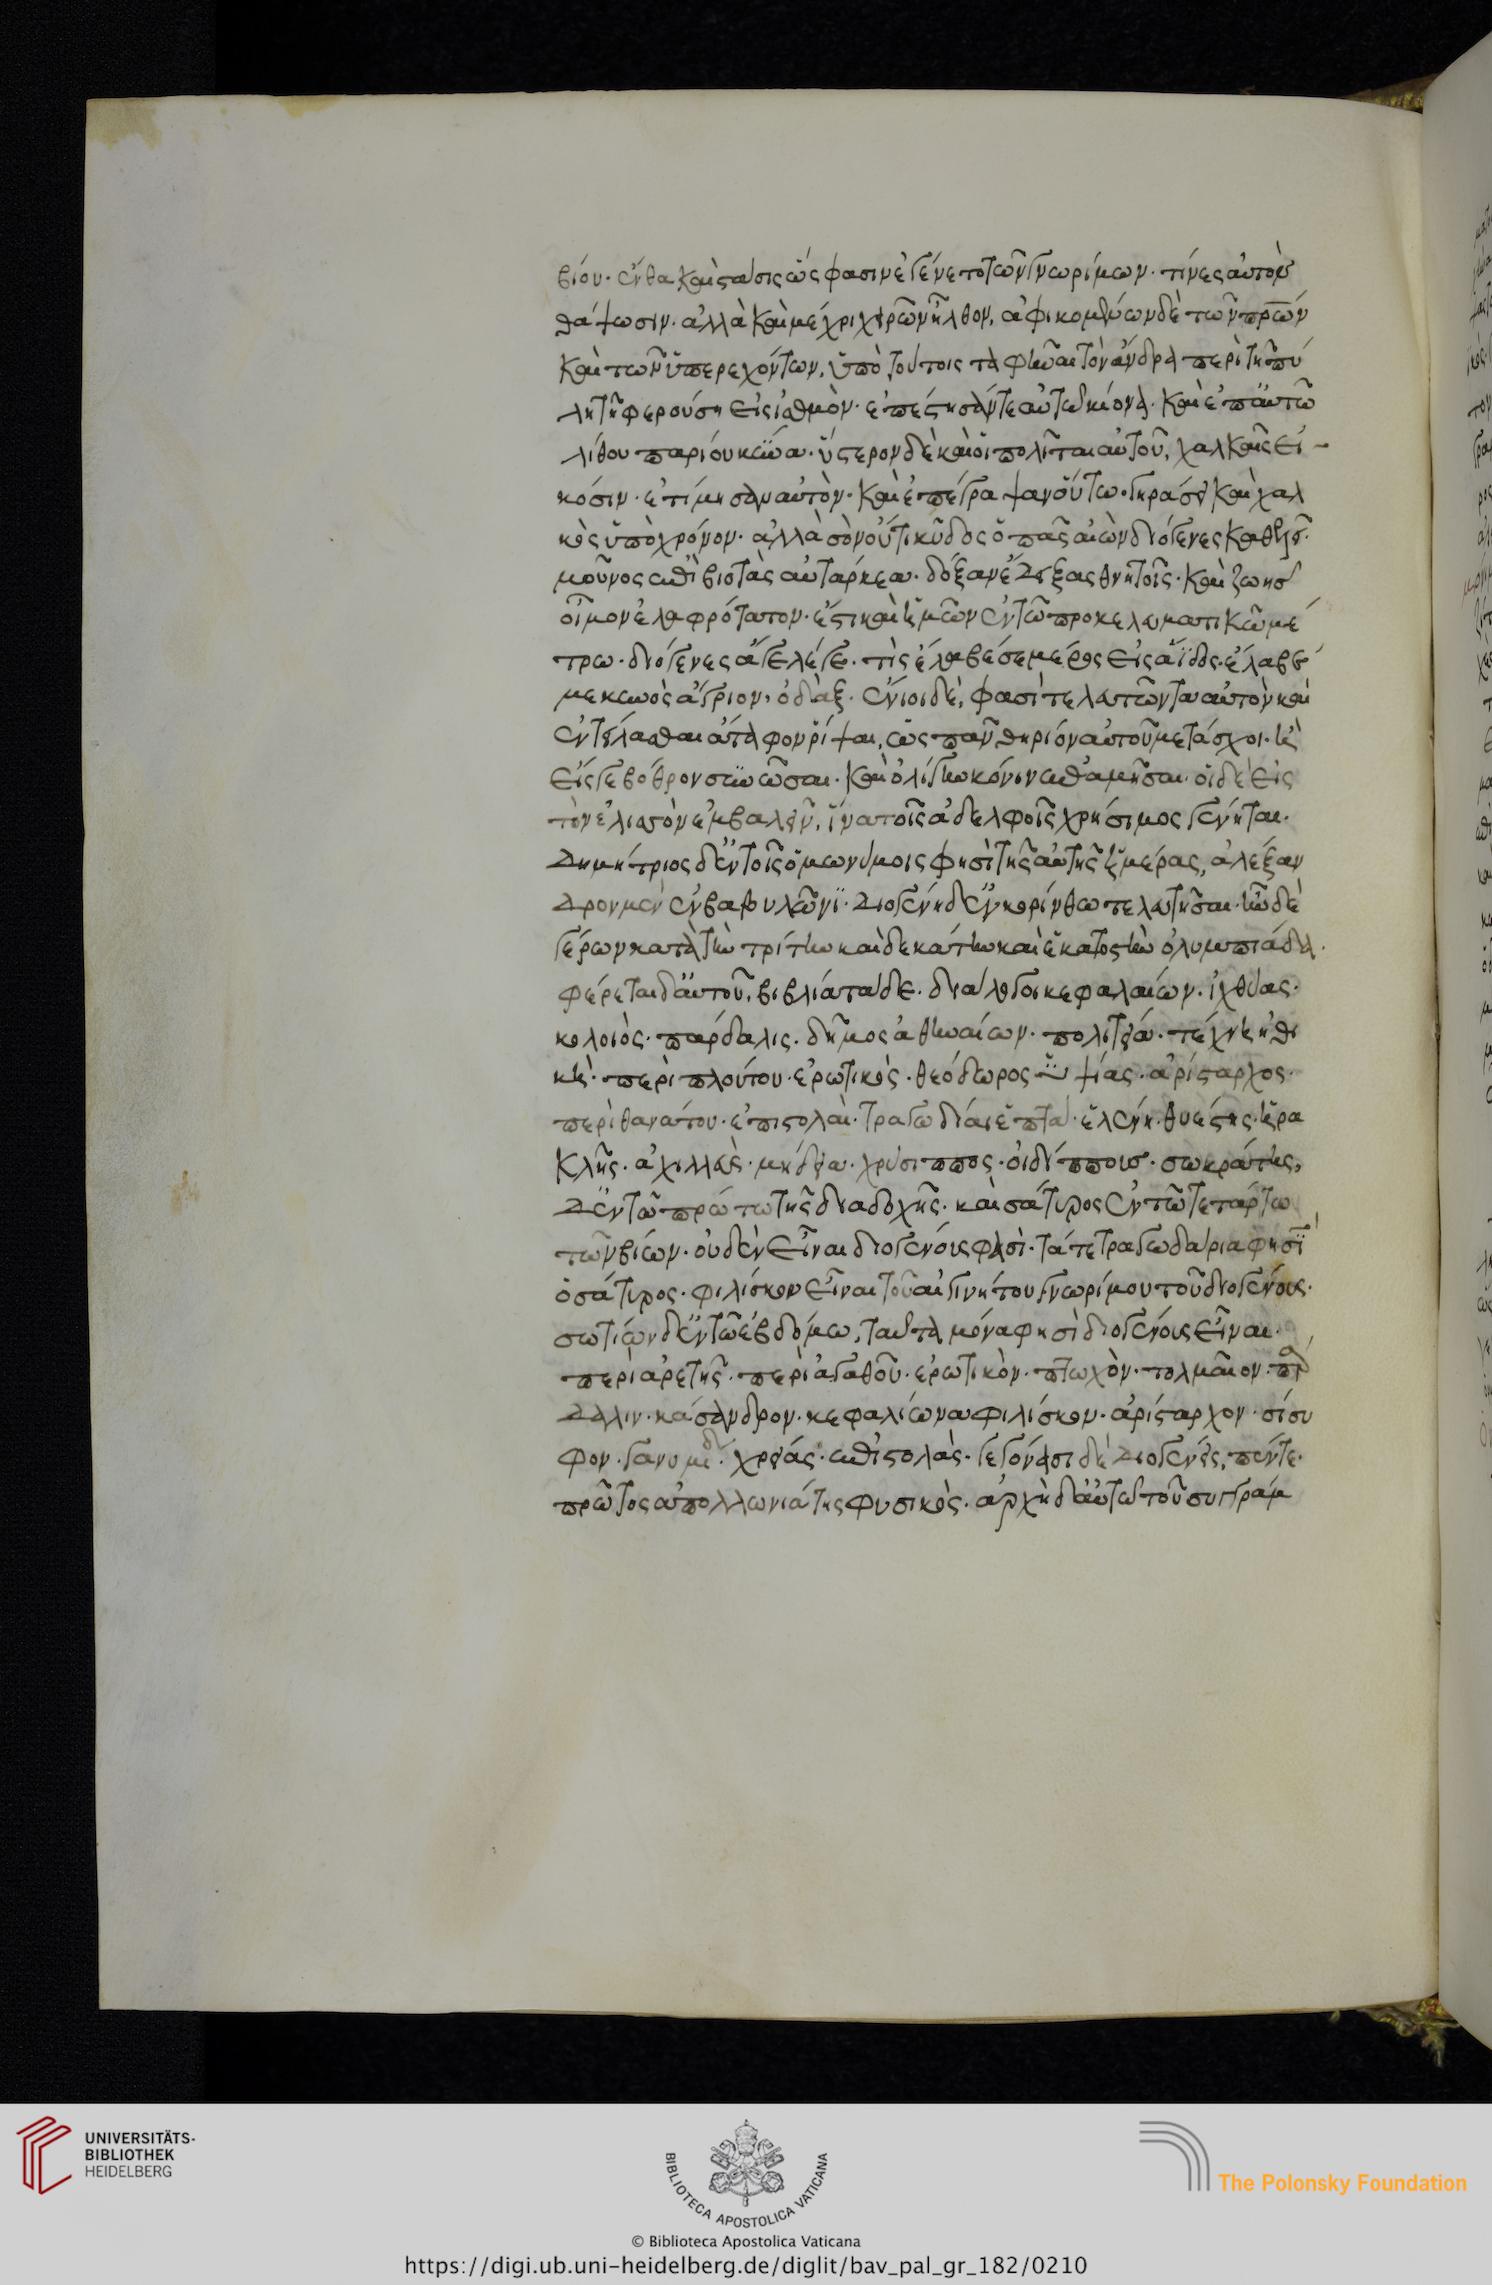 βίου· ἔνθα καὶ στάσις ὥς φασιν ἐγένετο τῶν γνωρίμων· τίνες αὐτὸν
θάψωσιν· ἀλλὰ καὶ μέχρι χειρῶν ἦλθον, ἀφικομένων δὲ τῶν πρων
καὶ τῶν ὑπερεχόντων, ὑπὸ τούτοις ταφῆναι τὸν ἄνδρα περὶ τῇ πύ
λῃ τῇ φερούσῃ εἰς ἰσθμὸν· ἐπέστησάν τε αὐτῷ κίονα· καὶ ἐπ' αὐτῷ
λίθου παρίου κύνα· ὕστερον δὲ καὶ οἱ πολῖται αὐτοῦ, χαλκαῖς εἰ
κόσιν· ἐτίμησαν αὐτὸν· καὶ ἐπέγραψαν οὕτω· γηράσκει καὶ χαλ
κὸς ὑπὸ χρόνου· ἀλλὰ σὸν οὔτι κῦδος ὁ πᾶς αἰὼν διόγενες καθελεῖ·
μοῦνος ἐπὶ βιοτᾶς αὐτάρκεα· δόξαν ἔδειξας θνητοῖς· καὶ ζωῆς
οἶμον ἐλαφρότατον· ἔστι καὶ ἡμῶν ἐν τῷ προκελευματικῷ μέ
τρω· διόγενες ἄγε λέγε· τίς ἔλαβέ σε μέρος εἰς ἄϊδος· ἔλαβέ
με κυνὸς ἄγριον, ὀδὰξ· ἔνιοι δὲ, φασὶ τελευτῶντα αὐτὸν καὶ
ἐντείλασθαι ἄταφον ῥίψαι, ὡς πᾶν θηρίον αὐτοῦ μετάσχοι· ἢ
εἴς γε βόθρον συνῶσαι· καὶ ὀλίγην κόνιν ἐπαμῆσαι· οἱ δὲ εἰς
τὸν ἐλισσὸν ἐμβαλεῖν, ἵνα τοῖς ἀδελφοῖς χρήσιμος γένηται·
Δημήτριος δ' ἐν τοῖς ὁμωνύμοις φησὶ τῆς αὐτῆς ἡμέρας, ἀλέξαν
δρον μὲν ἐν βαβυλῶνϊ· Διογένη δ' ἐν κορίνθω τελευτῆσαι· ἦν δὲ
γέρων κατὰ τὴν τρίτην καὶ δεκάτην καὶ ἑκατοστὴν ὀλυμπιάδα·
φέρεται δ' αὐτοῦ, βιβλία τάδε· διάλογοι κεφαλαίων· ἰχθύας·
κολοιὸς· πάρδαλις· δῆμος ἀθηναίων· πολιτεία· τέχνη ἠθι
κὴ· περὶ πλούτου· ἐρωτικὸς· θεόδωρος ὑψίας· ἀρίσταρχος·
περὶ θανάτου· ἐπιστολαὶ· τραγωδίαι ἑπτὰ· ἑλένη· θυέστης· ἡρα
κλῆς· ἀχιλλεὺς· μήδεια· χρύσιππος· οἰδίππους· σωκράτης,
δ' ἐν τῷ πρώτω τῆς διαδοχῆς· καὶ σάτυρος ἐν τῷ τετάρτω
τῶν βίων· οὐδὲν εἶναι διογένους φασὶ· τά τε τραγωδάρια φησῒ
ὁ σάτυρος· φιλίσκου εἶναι τοῦ αἰγινήτου γνωρίμου τοῦ διογένους·
σωτίων δ' ἐν τῷ ἑβδόμω, ταῦτα μόνα φησὶ διογένους εἶναι·
περὶ ἀρετῆς· περὶ ἀγαθοῦ· ἐρωτικὸν· πτωχὸν· τολμαῖον· πάρ
δαλιν· κάσανδρον· κεφαλίωνα φιλίσκον· ἀρίσταρχον· σίσυ
φον· γανυμήδ· χρείας· ἐπιστολὰς· γεγόνασι δὲ Διογένεις, πέντε·
πρῶτος ἀπολλωνιάτης φυσικὸς· ἀρχὴ δ' αὐτῷ τοῦ συγγράμ
UNIVERSITÄTS-
BIBLIOTHEK
HEIDELBERG
BIBLIOTECA APOSTOLICA VATICANA
The Polonsky Foundation
© Biblioteca Apostolica Vaticana
https://digi.ub.uni-heidelberg.de/diglit/bav_pal_gr_182/0210